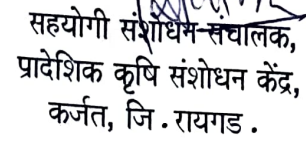 सहयोगी संशोधन संचालक,
प्रादेशिक कृषि संशोधन केंद्र,
कर्जत, जि . रायगड .